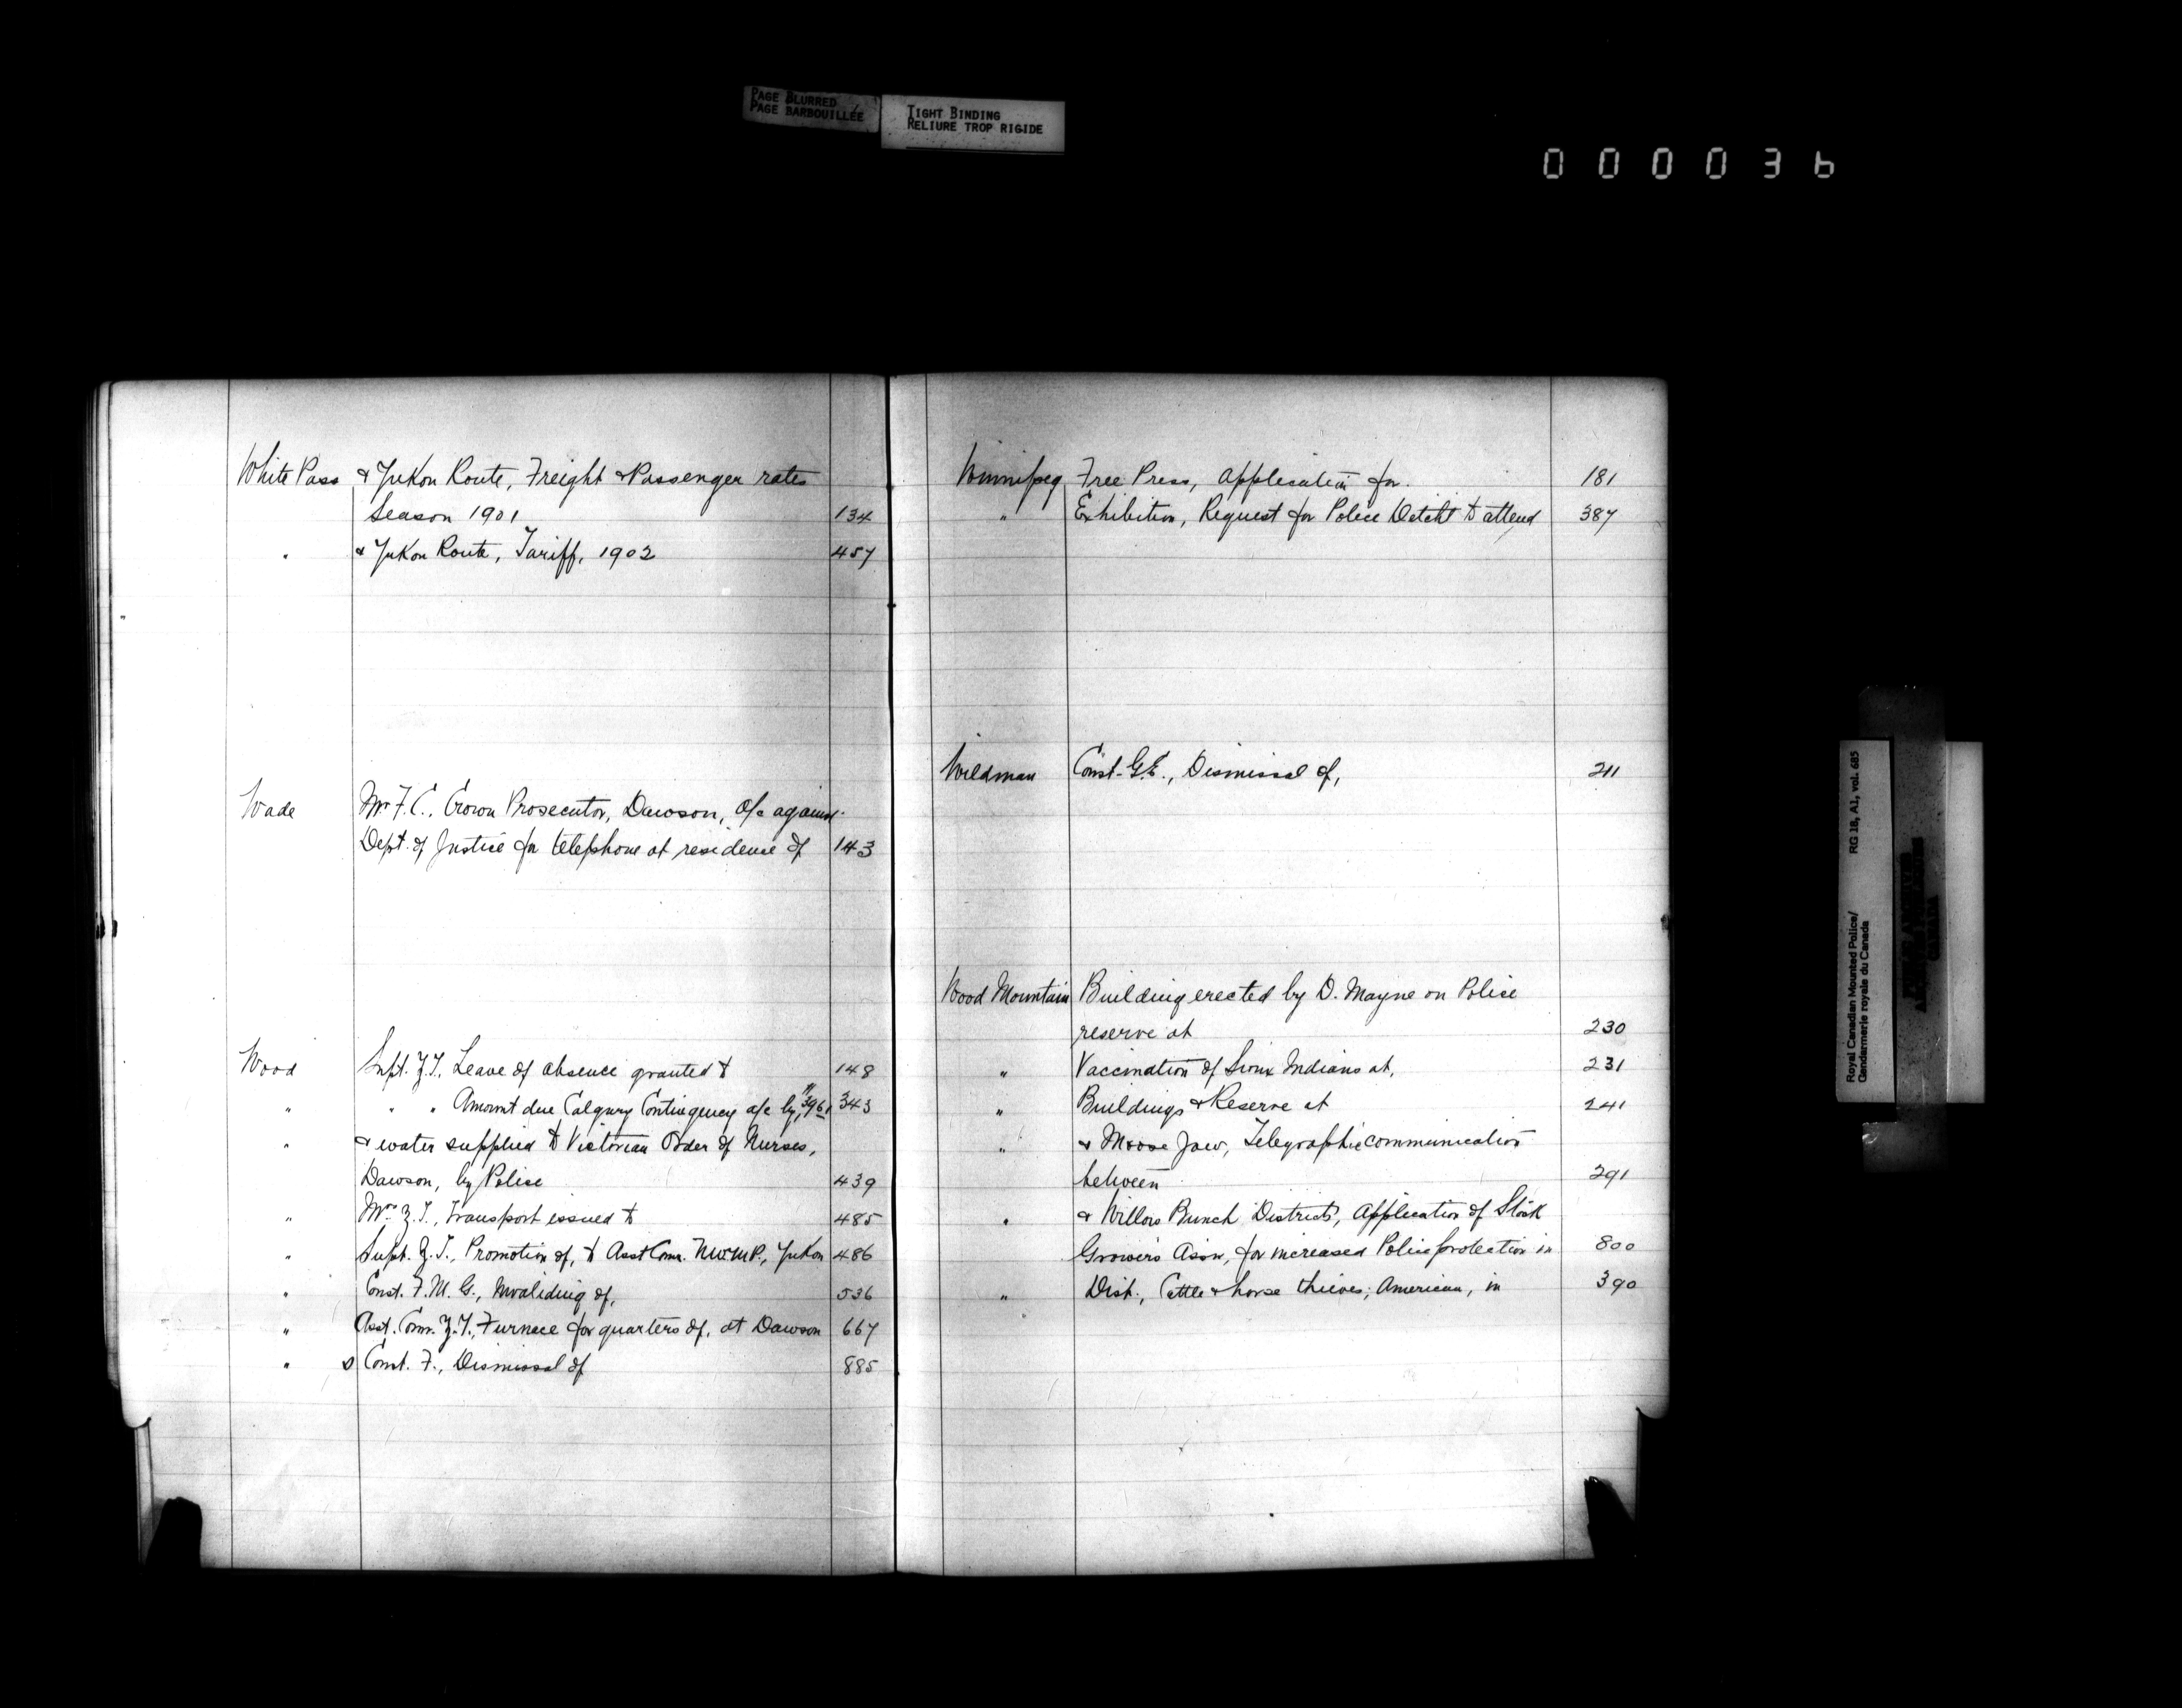 PAGE BLURRED
PAGE BARBOUILLÉE
TIGHT BINDING
RELIURE TROP RIGIDE
000036
White Pass & Yukon Route, Freight & Passenger rates
Season 1901 134
" & Yukon Route, Tariff, 1902 457
Wade Mr. F.C., Crown Prosecutor, Dawson, a/c against
Dept. of Justice for telephone at residence of 143
Wood Supt. Z.T., Leave of absence granted to 148
" " " Amount due Calgary Contingency a/c by, 343
" & water supplied to Victorian Order of Nurses,
Dawson, by Police 439
" Mrs. Z.T., Transport issued to 485
" Supt. Z.T., Promotion of, to Asst Comr. N.W.M.P., Yukon 486
" Const. F.M.G., Invaliding of, 536
" Asst. Comr. Z.T., Furnace for quarters of, at Dawson 667
" s Const. F., Dismissal of 885
Winnipeg Free Press, Application for. 181
" Exhibition, Request for Police Detcht to attend 387
Wildman Const. G.E., Dismissal of, 211
Wood Mountain Building erected by D. Mayne on Police
reserve at 230
" Vaccination of Sioux Indians at, 231
" Buildings & Reserve at 241
" & Moose Jaw, Telegraphic communication
between 291
" & Willow Bunch Districts, Application of Stock
Growers Assn, for increased Police protection in 800
" Dist., Cattle & horse thieves, American, in 390
Royal Canadian Mounted Police/
Gendarmerie royale du Canada
RG 18, A1, vol. 685